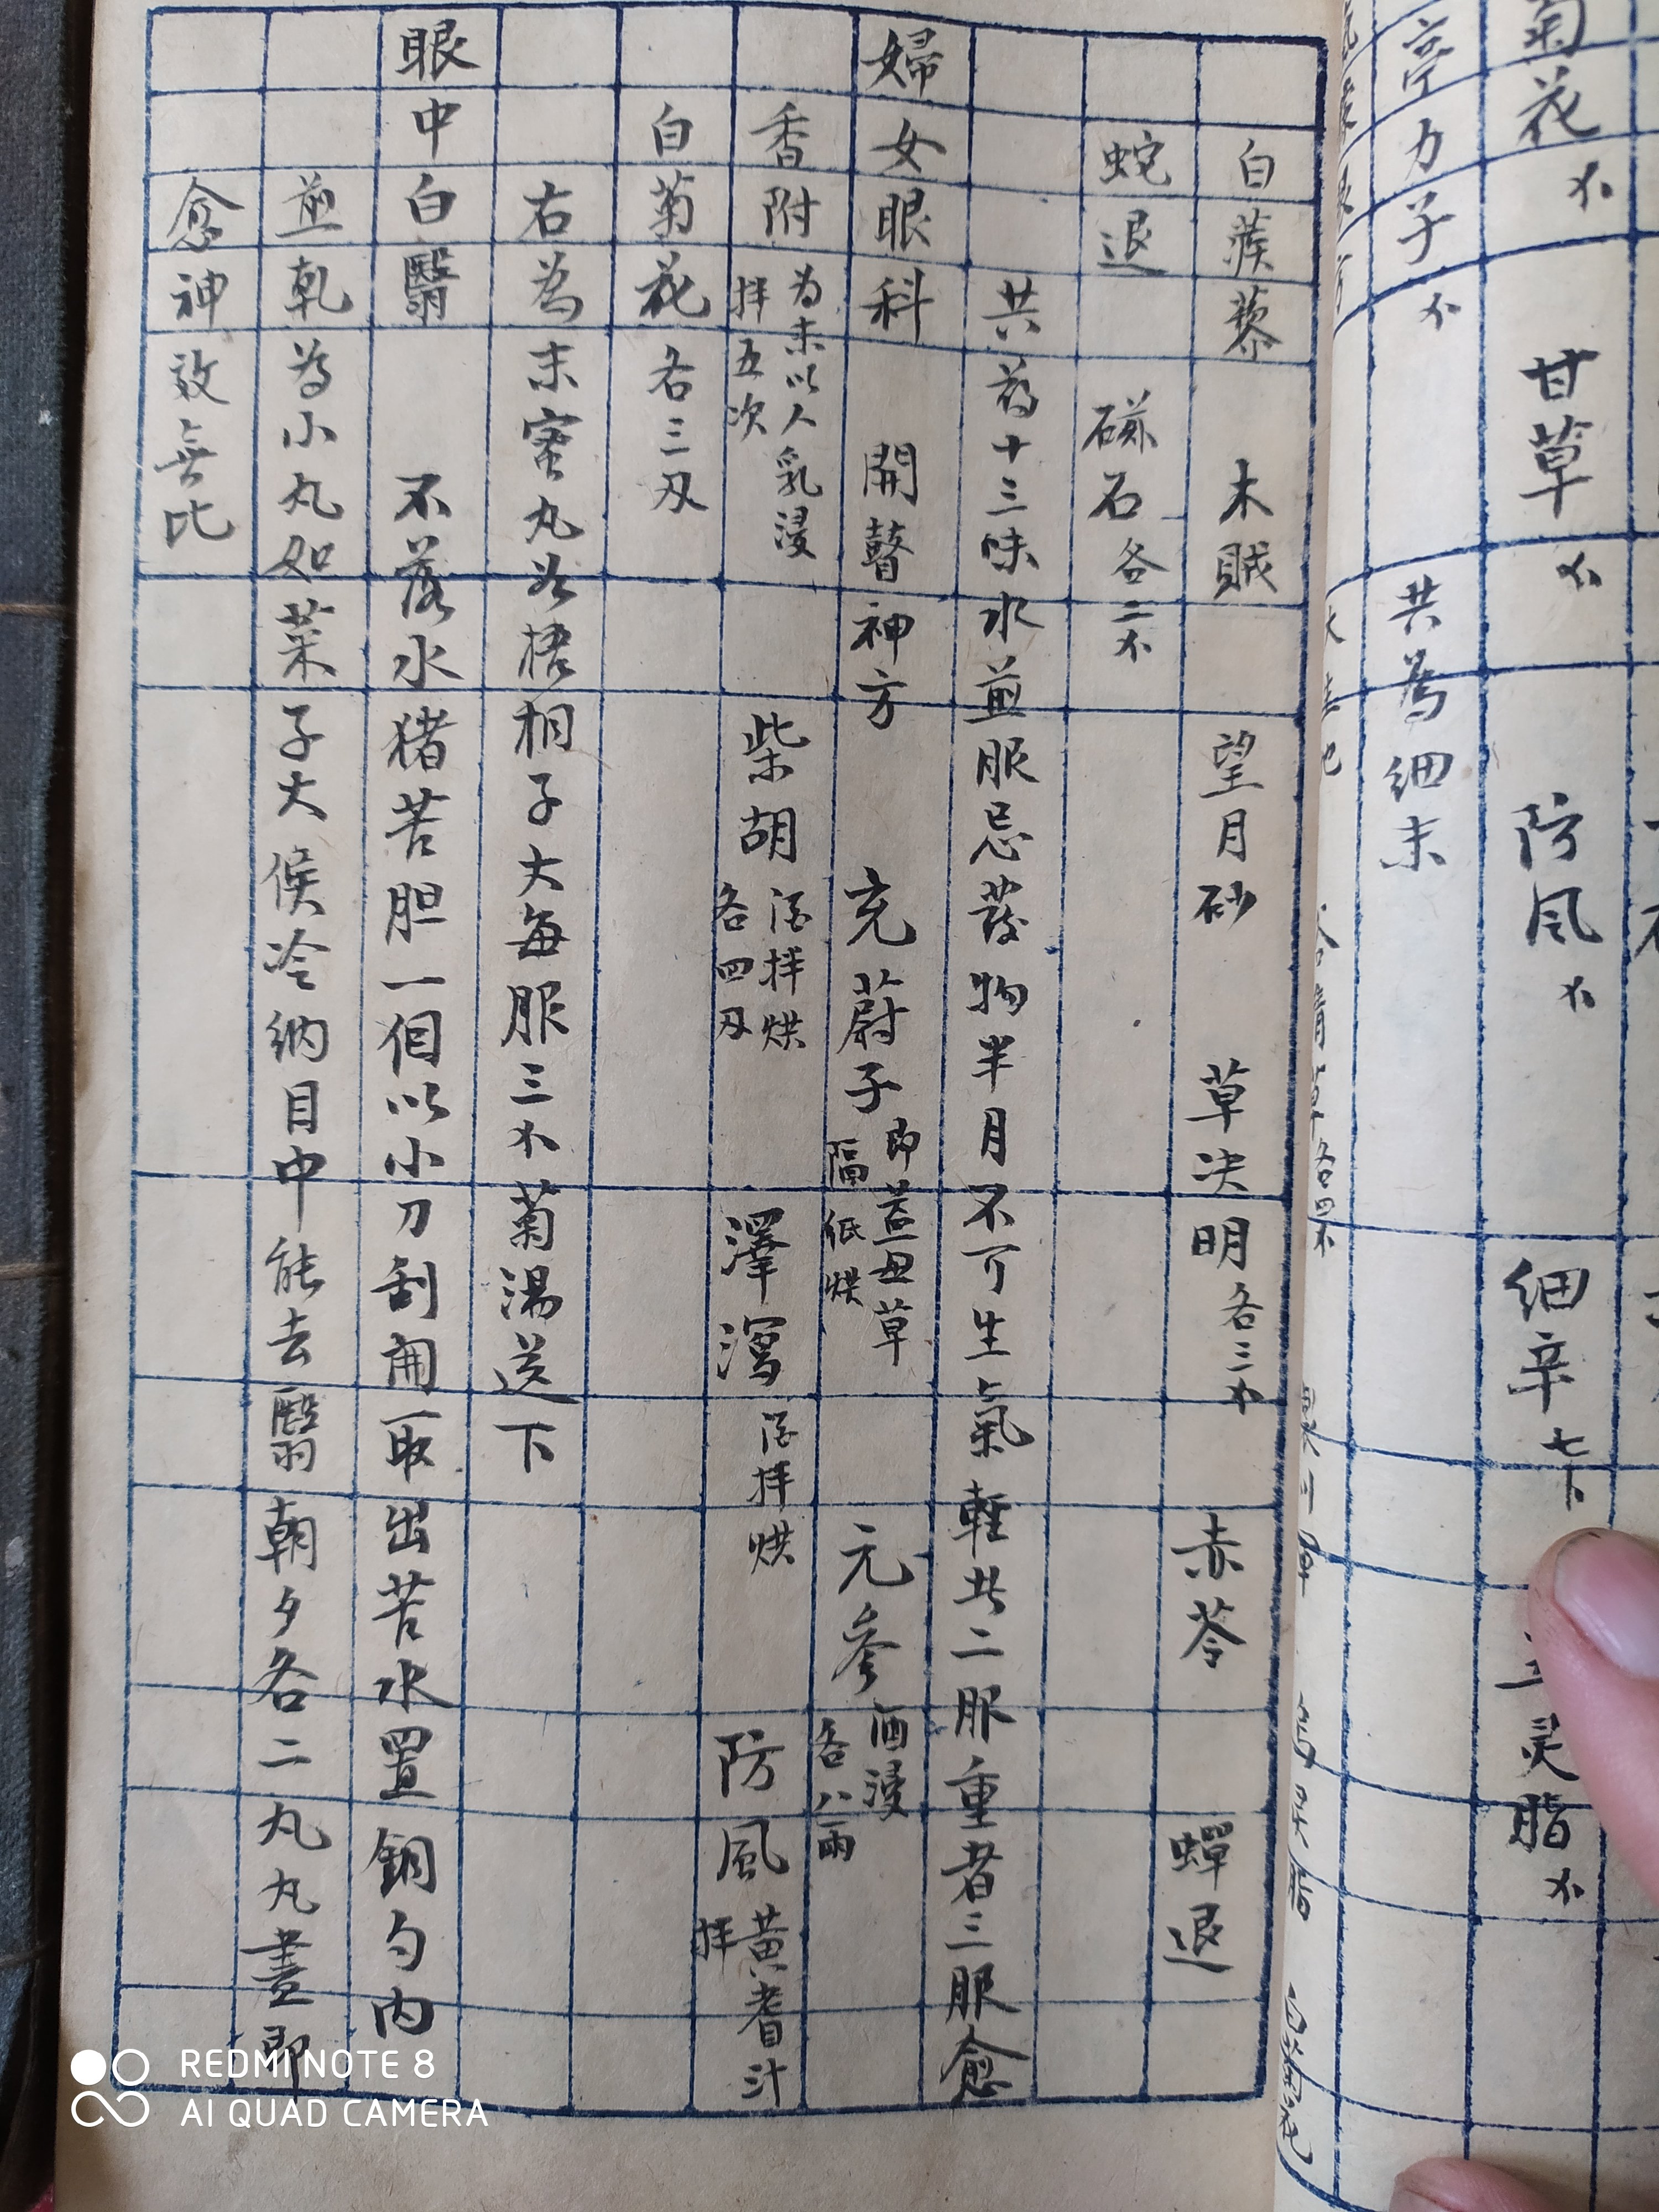 菊花 甘草 防風 細辛 灵脂
葶力子 共為細末
白蒺藜 木賊 望月砂 草决明 各三 赤苓 蟬退
蛇退 磁石 各二
共葯十三味水煎服忌發物半月不可生氣輕此二服重者三服愈
婦女眼科 開瞽神方 充蔚子 即益母草 隔紙烘 元參 酒浸 各八兩
香附 为末以人乳浸 拌五次 柴胡 酒拌烘 各四刄 澤瀉 酒拌烘 防風 黃耆汁 拌
白菊花 各三刄
右為末蜜丸如梧桐子大每服三 菊湯送下
眼中白翳 不落水猪苦胆一個以小刀刮開取出苦水置銅勺內
煎乾為小丸如菜子大候冷納目中能去翳朝夕各二丸丸盡即
愈神效無比
REDMI NOTE 8
AI QUAD CAMERA